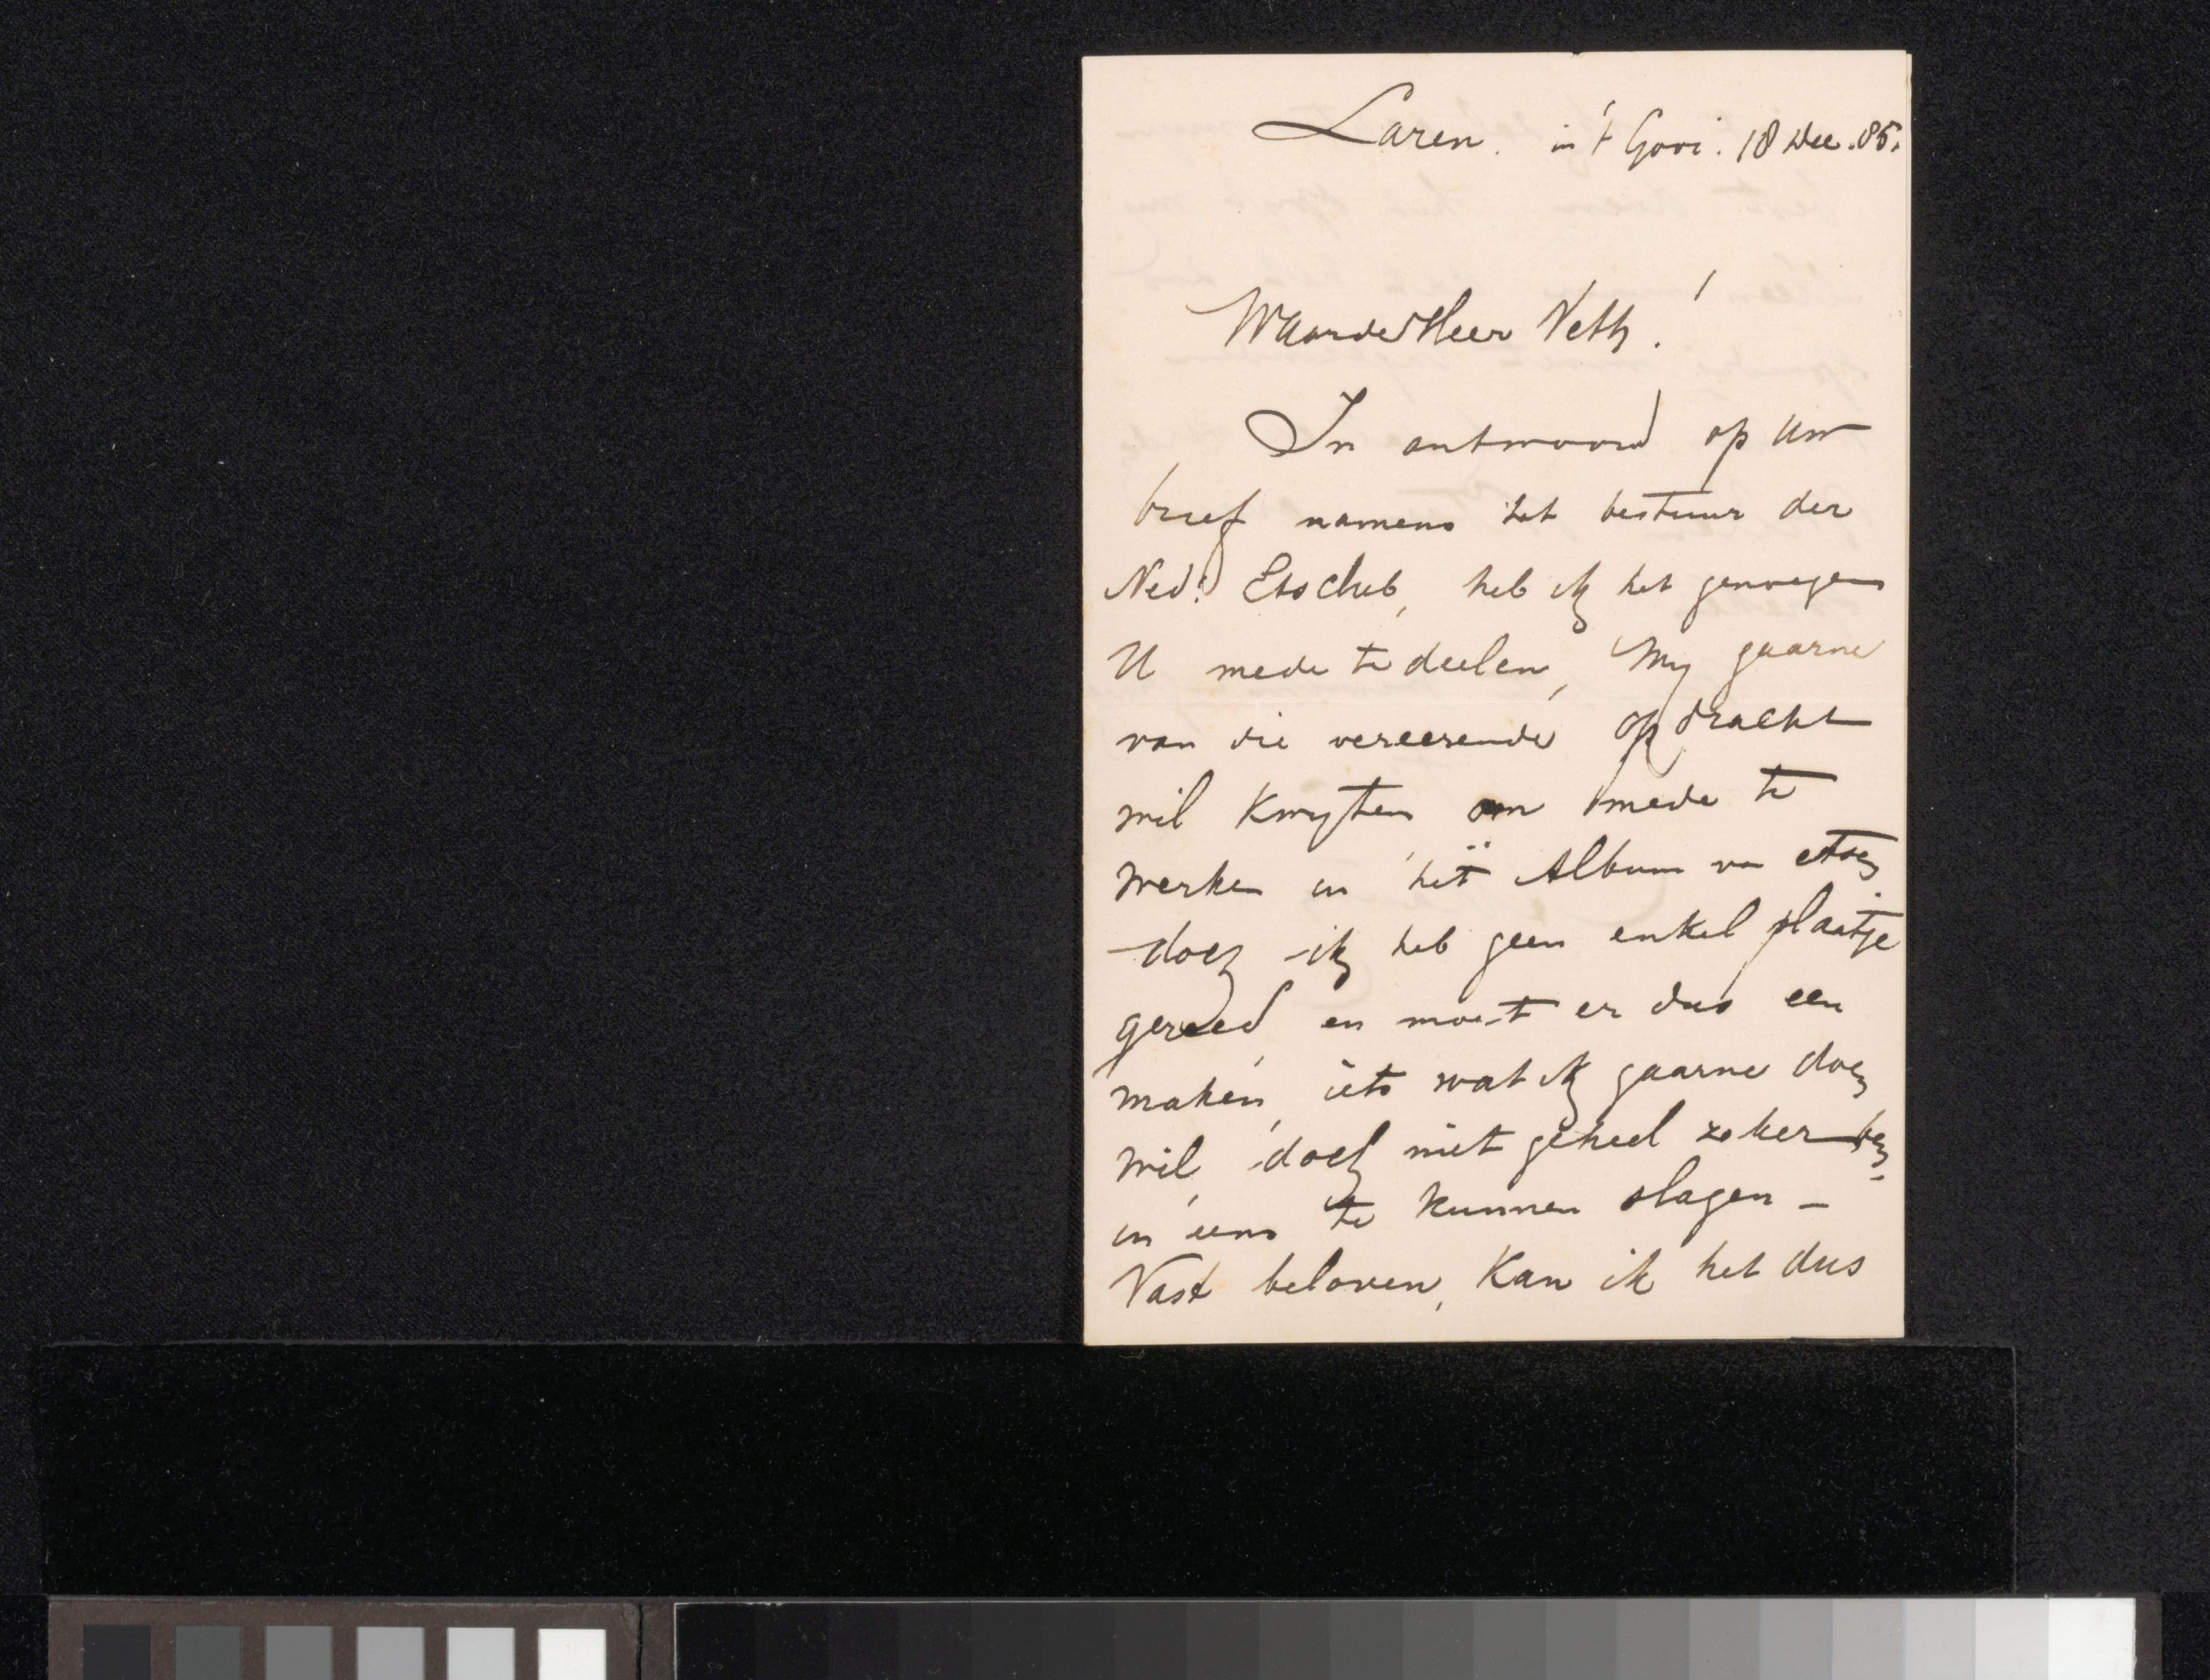 Laren. in 't Gooi. 18 Dec. 85.
Waarde Heer Veth!
In antwoord op Uw
brief namens het bestuur der
Ned: Etsclub, heb ik het genoegen
U mede te deelen, My gaarne
van die vereerende opdracht
wil kwyten om mede te
werken in het Album van etsen
doch ik heb geen enkel plaatje
gereed, en moet er dus een
maken, iets wat ik gaarne doen
wil, doch niet geheel zeker ben
in eens te kunnen slagen –
Vast beloven, kan ik het dus